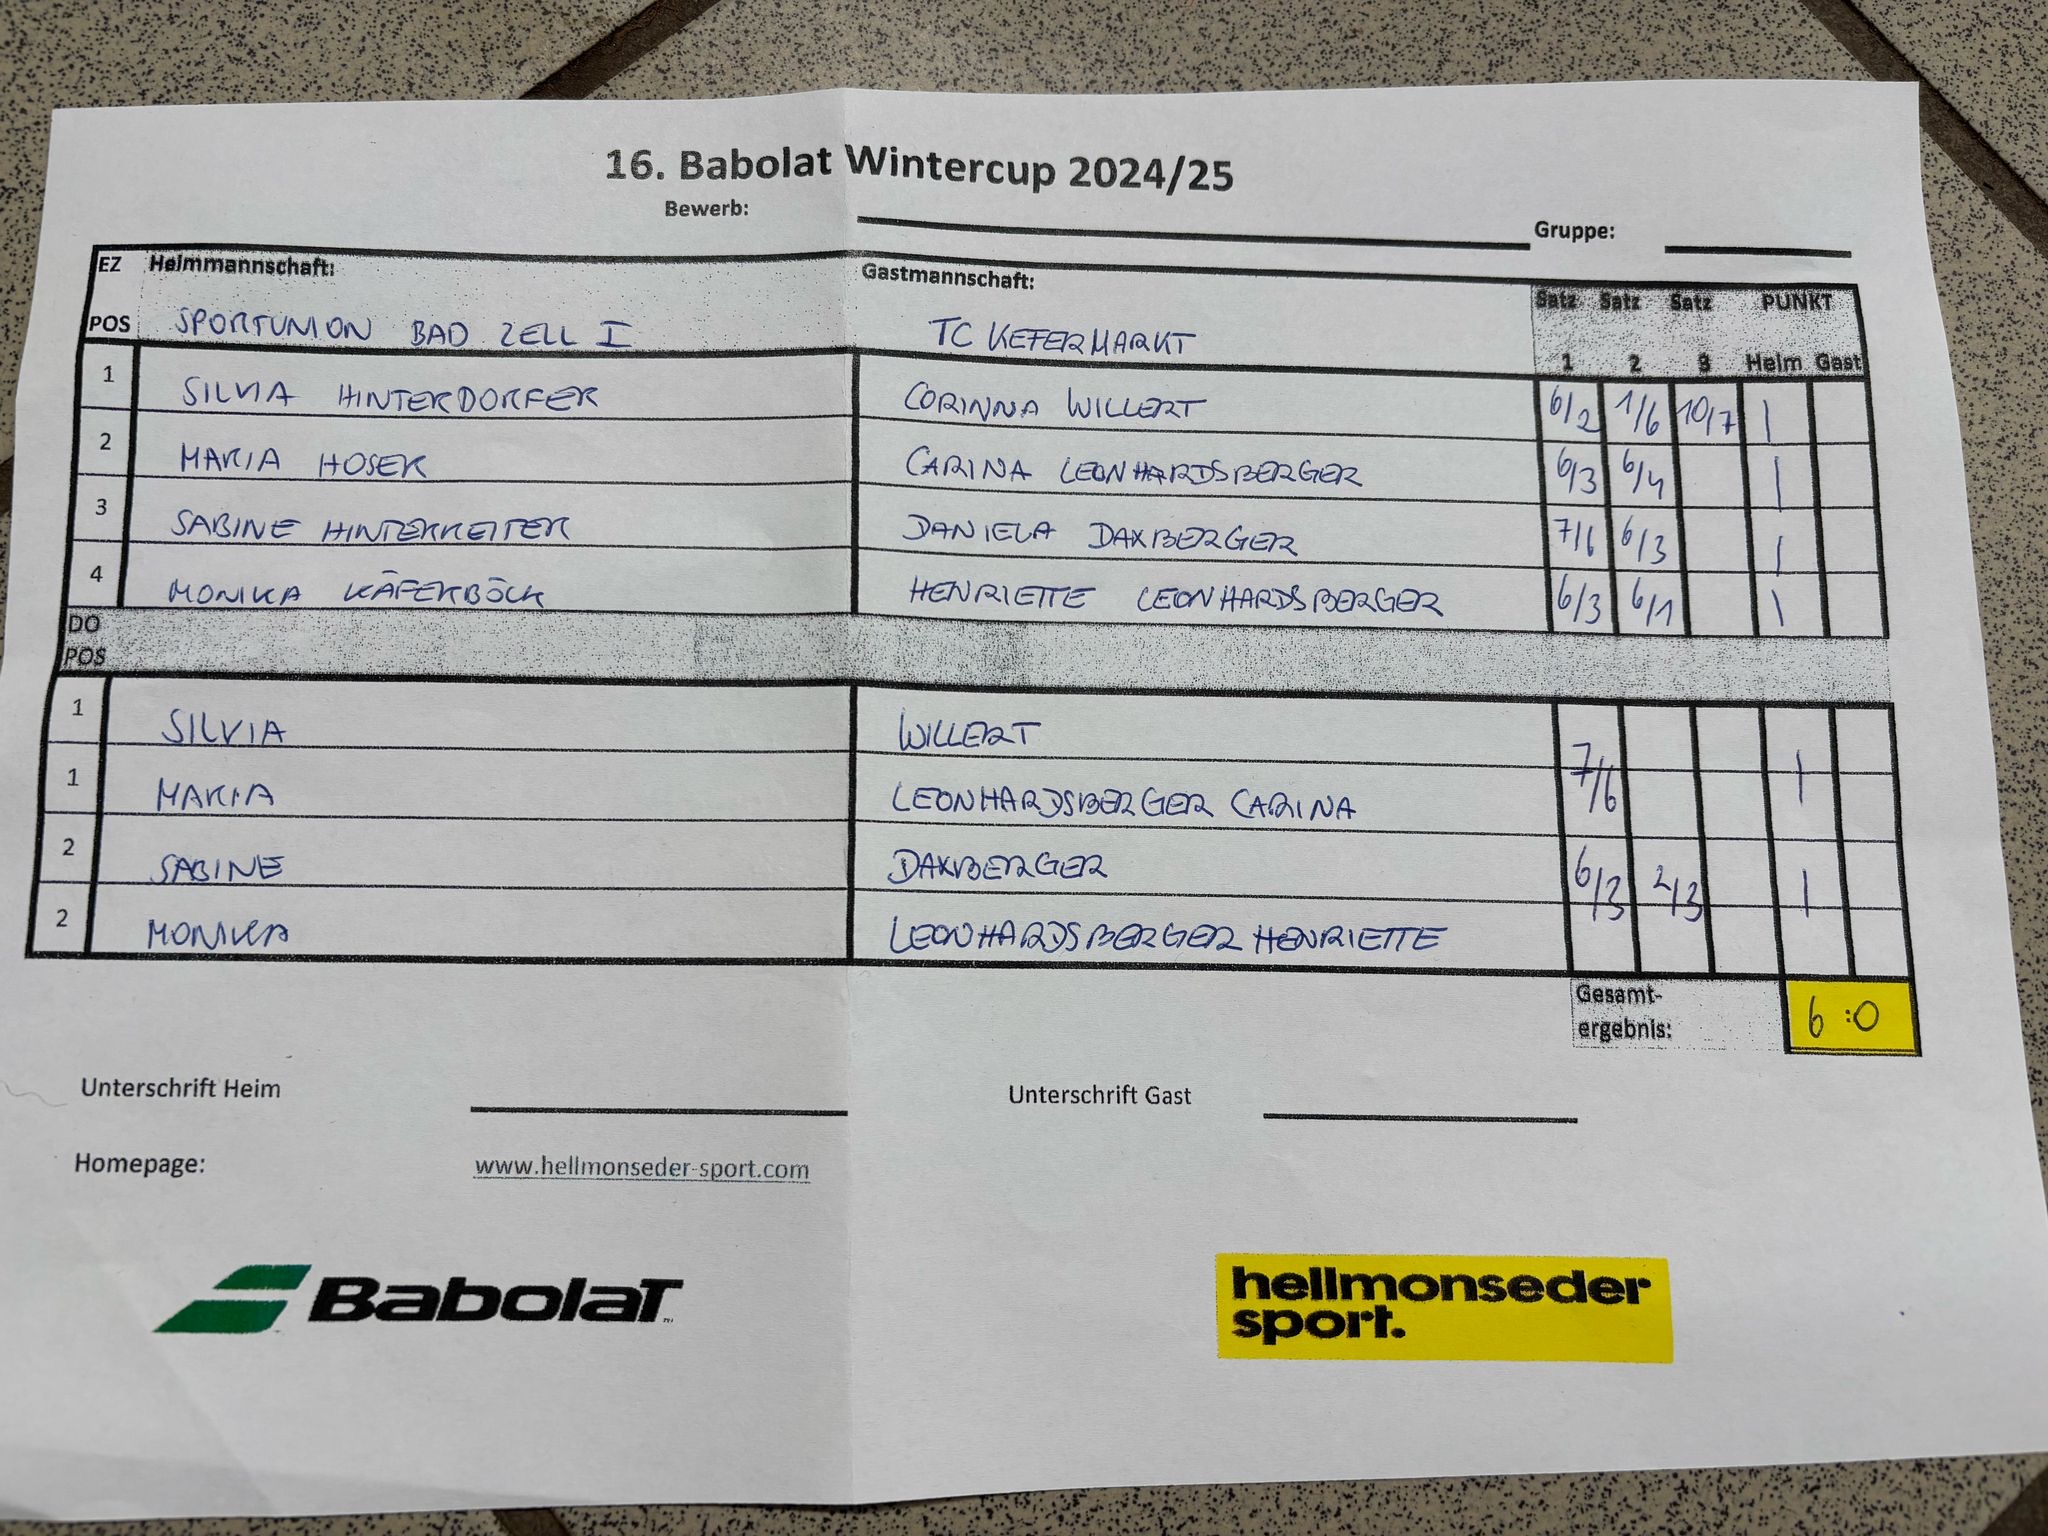 16. Babolat Wintercup 2024/25
Bewerb:
Gruppe:
EZ Heimmannschaft: Gastmannschaft: Satz Satz Satz PUNKT
POS SPORTUNION BAD ZELL I TC KEFERMARKT 1 2 3 Heim Gast
1 SILVIA HINTERDORFER CORINNA WILLERT 6/2 1/6 10/7 |
2 MARIA HOSER CARINA LEONHARDSBERGER 6/3 6/4 |
3 SABINE HINTERREITER DANIELA DAXBERGER 7/6 6/3 |
4 MONIKA KÄFERBÖCK HENRIETTE LEONHARDSBERGER 6/3 6/1 |
DO
POS
1 SILVIA WILLERT
7/6 |
1 MARIA LEONHARDSBERGER CARINA
2 SABINE DAXBERGER
6/3 2/3 |
2 MONIKA LEONHARDSBERGER HENRIETTE
Gesamt-
ergebnis: 6:0
Unterschrift Heim Unterschrift Gast
Homepage: www.hellmonseder-sport.com
Babolat
hellmonseder
sport.